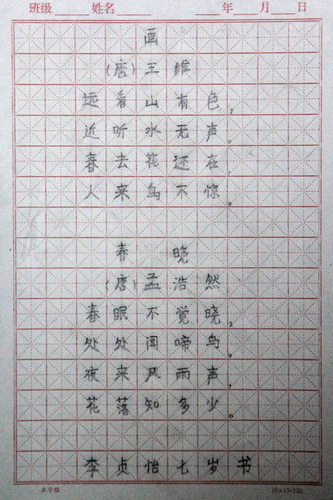 班级 姓名 年 月 日
画
(唐)王维
远看山有色,
近听水无声。
春去花还在,
人来鸟不惊。
春晓
(唐)孟浩然
春眠不觉晓,
处处闻啼鸟。
夜来风雨声,
花落知多少。
李贞怡七岁书